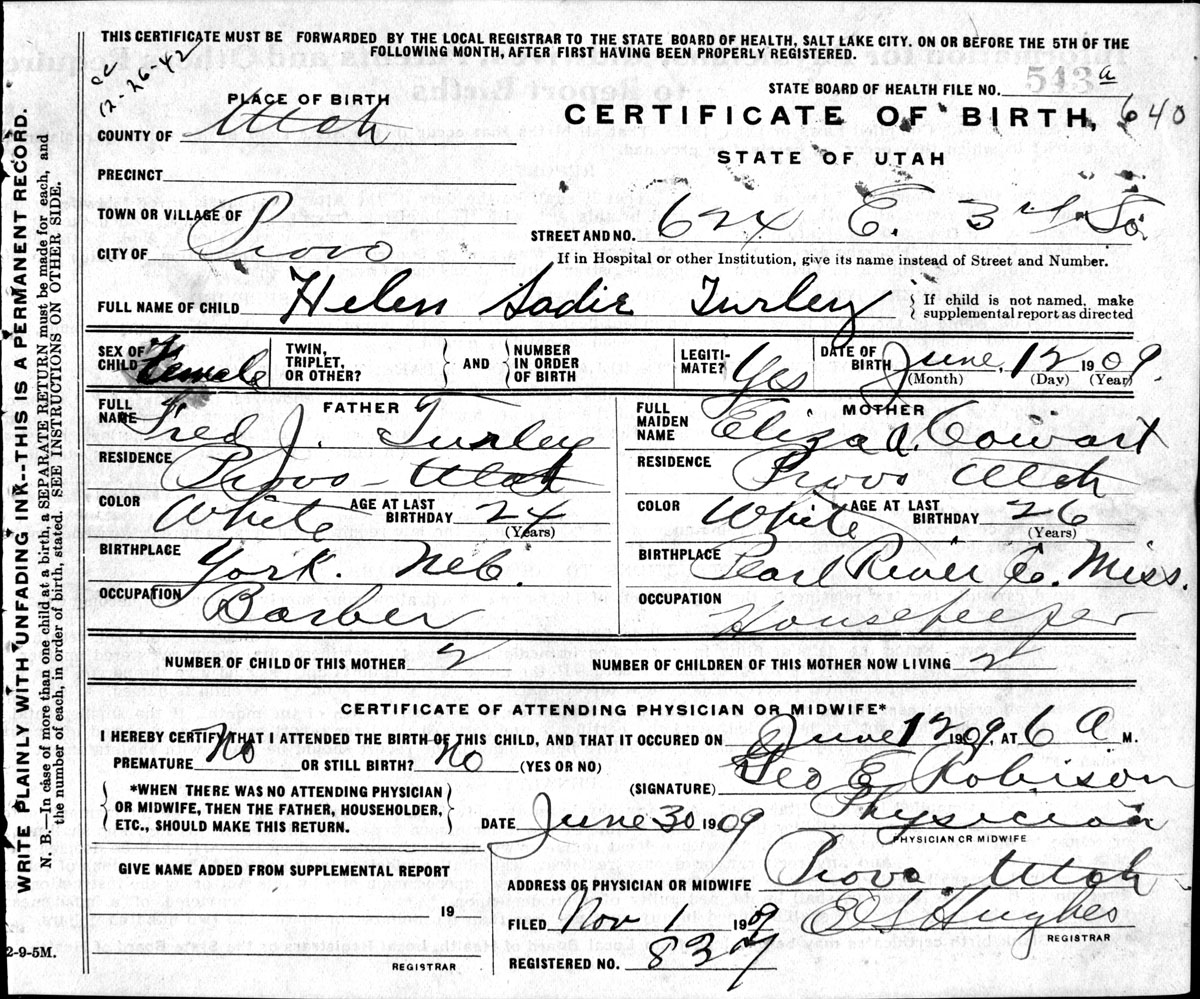 THIS CERTIFICATE MUST BE FORWARDED BY THE LOCAL REGISTRAR TO THE STATE BOARD OF HEALTH, SALT LAKE CITY, ON OR BEFORE THE 5TH OF THE
FOLLOWING MONTH, AFTER FIRST HAVING BEEN PROPERLY REGISTERED.
12-26-42
STATE BOARD OF HEALTH FILE NO. 543 a
PLACE OF BIRTH
CERTIFICATE OF BIRTH, 640
COUNTY OF Utah
STATE OF UTAH
PRECINCT
TOWN OR VILLAGE OF
STREET AND NO. 624 E. 3rd So.
CITY OF Provo
If in Hospital or other Institution, give its name instead of Street and Number.
FULL NAME OF CHILD Helen Sadie Turley
If child is not named, make
supplemental report as directed
SEX OF
CHILD Female
TWIN,
TRIPLET,
OR OTHER?
AND
NUMBER
IN ORDER
OF BIRTH
LEGITI-
MATE? Yes
DATE OF
BIRTH June, 12 1909.
(Month) (Day) (Year)
FATHER
FULL
NAME Fred J. Turley
RESIDENCE Provo - Utah
COLOR White AGE AT LAST
BIRTHDAY 24
(Years)
BIRTHPLACE York. Neb.
OCCUPATION Barber
MOTHER
FULL
MAIDEN
NAME Eliza A. Cowart
RESIDENCE Provo Utah
COLOR White AGE AT LAST
BIRTHDAY 26
(Years)
BIRTHPLACE Pearl River Co. Miss.
OCCUPATION Housekeeper
NUMBER OF CHILD OF THIS MOTHER 2 NUMBER OF CHILDREN OF THIS MOTHER NOW LIVING 2
CERTIFICATE OF ATTENDING PHYSICIAN OR MIDWIFE*
I HEREBY CERTIFY THAT I ATTENDED THE BIRTH OF THIS CHILD, AND THAT IT OCCURED ON June 12 1909, AT 6 A M.
PREMATURE No OR STILL BIRTH? No (YES OR NO)
(SIGNATURE) Geo E. Robison
*WHEN THERE WAS NO ATTENDING PHYSICIAN
OR MIDWIFE, THEN THE FATHER, HOUSEHOLDER,
ETC., SHOULD MAKE THIS RETURN.
DATE June 30 1909 Physician
PHYSICIAN OR MIDWIFE
GIVE NAME ADDED FROM SUPPLEMENTAL REPORT
19
REGISTRAR
ADDRESS OF PHYSICIAN OR MIDWIFE Provo. Utah
FILED Nov 1 1909 Hughes
REGISTRAR
REGISTERED NO. 837
2-9-5M.
WRITE PLAINLY WITH UNFADING INK--THIS IS A PERMANENT RECORD.
N. B.—In case of more than one child at a birth, a SEPARATE RETURN must be made for each, and
the number of each, in order of birth, stated. SEE INSTRUCTIONS ON OTHER SIDE.